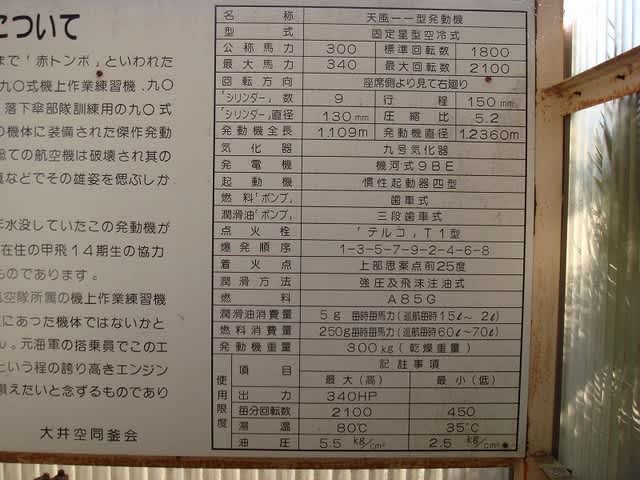 について
まで「赤トンボ」といわれた
九〇式機上作業練習機.九〇
落下傘部隊訓練用の九〇式
の機体に装備された傑作発動
ての航空機は破壊され其の
真などでその雄姿を偲ぶしか
水没していたこの発動機が
在住の甲飛14期生の協力
ものであります。
空隊所属の機上作業練習機
にあった機体ではないかと
ん。元海軍の搭乗員でこのエ
という程の誇り高きエンジン
えたいと念ずるものであり
大井空同釜会
名称 天風一一型発動機
型式 固定星型空冷式
公称馬力 300 標準回転数 1800
最大馬力 340 最大回転数 2100
回転方向 座席側より見て右廻り
「シリンダー」数 9 行程 150mm
「シリンダー」直径 130mm 圧縮比 5.2
発動機全長 1.109m 発動機直径 1.2360m
気化器 九号気化器
発電機 機河式9BE
起動機 慣性起動器四型
燃料「ポンプ」 歯車式
潤滑油「ポンプ」 三段歯車式
点火栓 「テルコ」T1型
爆発順序 1-3-5-7-9-2-4-6-8
着火点 上部思案点前25度
潤滑方法 強圧及飛沫注油式
燃料 A85G
潤滑油消費量 5g 毎時毎馬力(巡航毎時1.5ℓ~2ℓ)
燃料消費量 250g毎時毎馬力(巡航毎時60ℓ~70ℓ)
発動機重量 300kg(乾燥重量)
使用限度 項目 記註事項
最大(高) 最小(低)
出力 340HP
毎分回転数 2100 450
湯温 80℃ 35℃
油圧 5.5kg/cm² 2.5kg/cm²